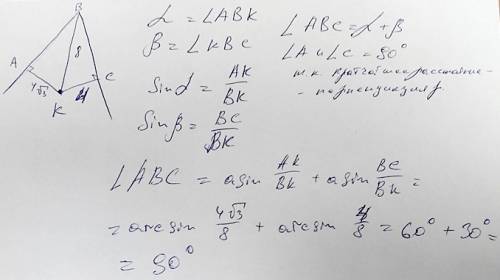 B
8
A
C
4√3
4
K
α = ∠ABK
β = ∠KBC
sin α = AK/BK
sin β = BC/BK
∠ABC = α + β
∠A и ∠C = 90°
т.к. кратчайшее расстояние -
- перпендикуляр.
∠ABC = asin AK/BK + asin BC/BK =
= arcsin 4√3/8 + arcsin 4/8 = 60° + 30° =
= 90°